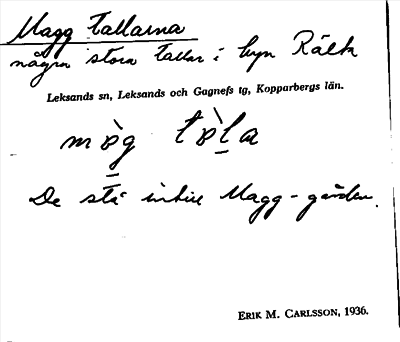 Magg tallarna
några stora tallar i byn Rälta
Leksands sn, Leksands och Gagnefs tg, Kopparbergs län.
mò̲g tò̲la
De stå intill Magg-gården.
ERIK M. CARLSSON, 1936.